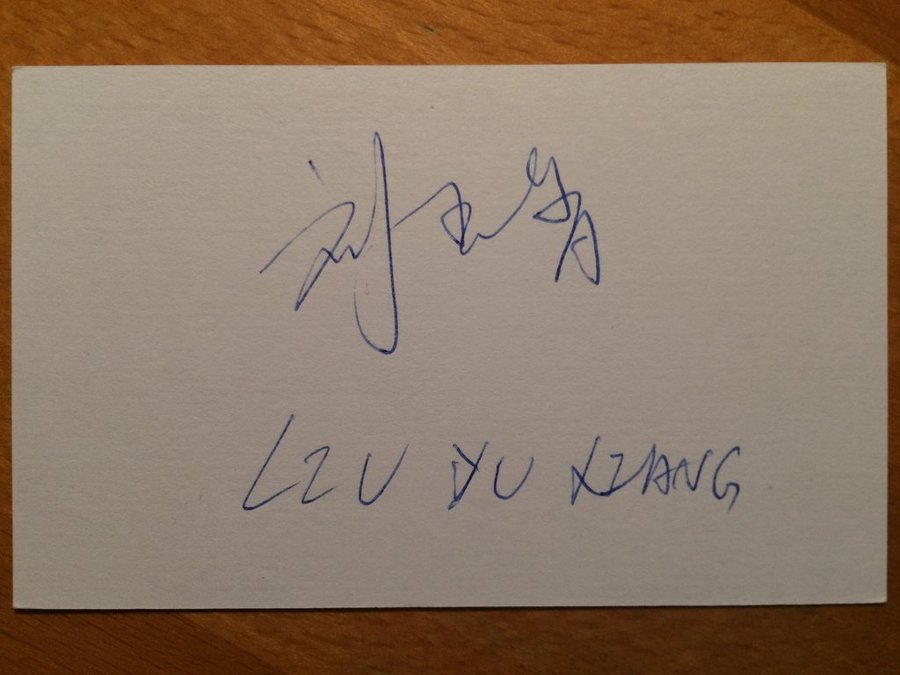 刘玉香
LIU YU XIANG